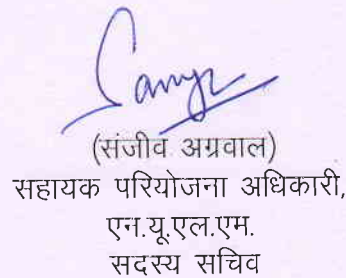 (संजीव अग्रवाल)
सहायक परियोजना अधिकारी,
एन.यू.एल.एम.
सदस्य सचिव